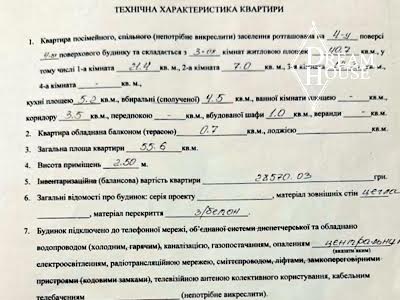 ТЕХНІЧНА ХАРАКТЕРИСТИКА КВАРТИРИ
DREAM HOUSE
1. Квартира посімейного, спільного (непотрібне викреслити) заселення розташована на 4-у поверсі
4-ох поверхового будинку та складається з 3-ох кімнат житловою площею 40.7 кв.м., у
тому числі 1-а кімната 21.4 кв. м., 2-а кімната 7.0 кв. м., 3-я кімната кв.м.,
4-а кімната - кв.м.,
кухні площею 5.2 кв.м., вбиральні (сполученої) 4.5 кв.м., ванної кімнати площею - кв.м.,
коридору 3.5 кв.м., передпокою - кв.м., вбудованої шафи 1.0 кв.м., веранди - кв.м.
2. Квартира обладнана балконом (терасою) 0.7 кв.м., лоджією кв.м.
3. Загальна площа квартири 55.6 кв.м.
4. Висота приміщень 2.50 м.
5. Інвентаризаційна (балансова) вартість квартири 28570.03 грн.
6. Загальні відомості про будинок: серія проекту , матеріал зовнішніх стін цегла
, матеріал перекриття з/бетон.
7. Будинок підключено до телефонної мережі, об'єднаної системи диспетчерської та обладнано
водопроводом (холодним, гарячим), каналізацією, газопостачанням, опаленням центральним
(вказати яким)
електроосвітленням, радіотрансляційною мережею, сміттепроводом, ліфтами, замкопереговорними
пристроями (кодовими замками), телевізійною антеною колективного користування, кабельним
телебаченням (непотрібне викреслити).